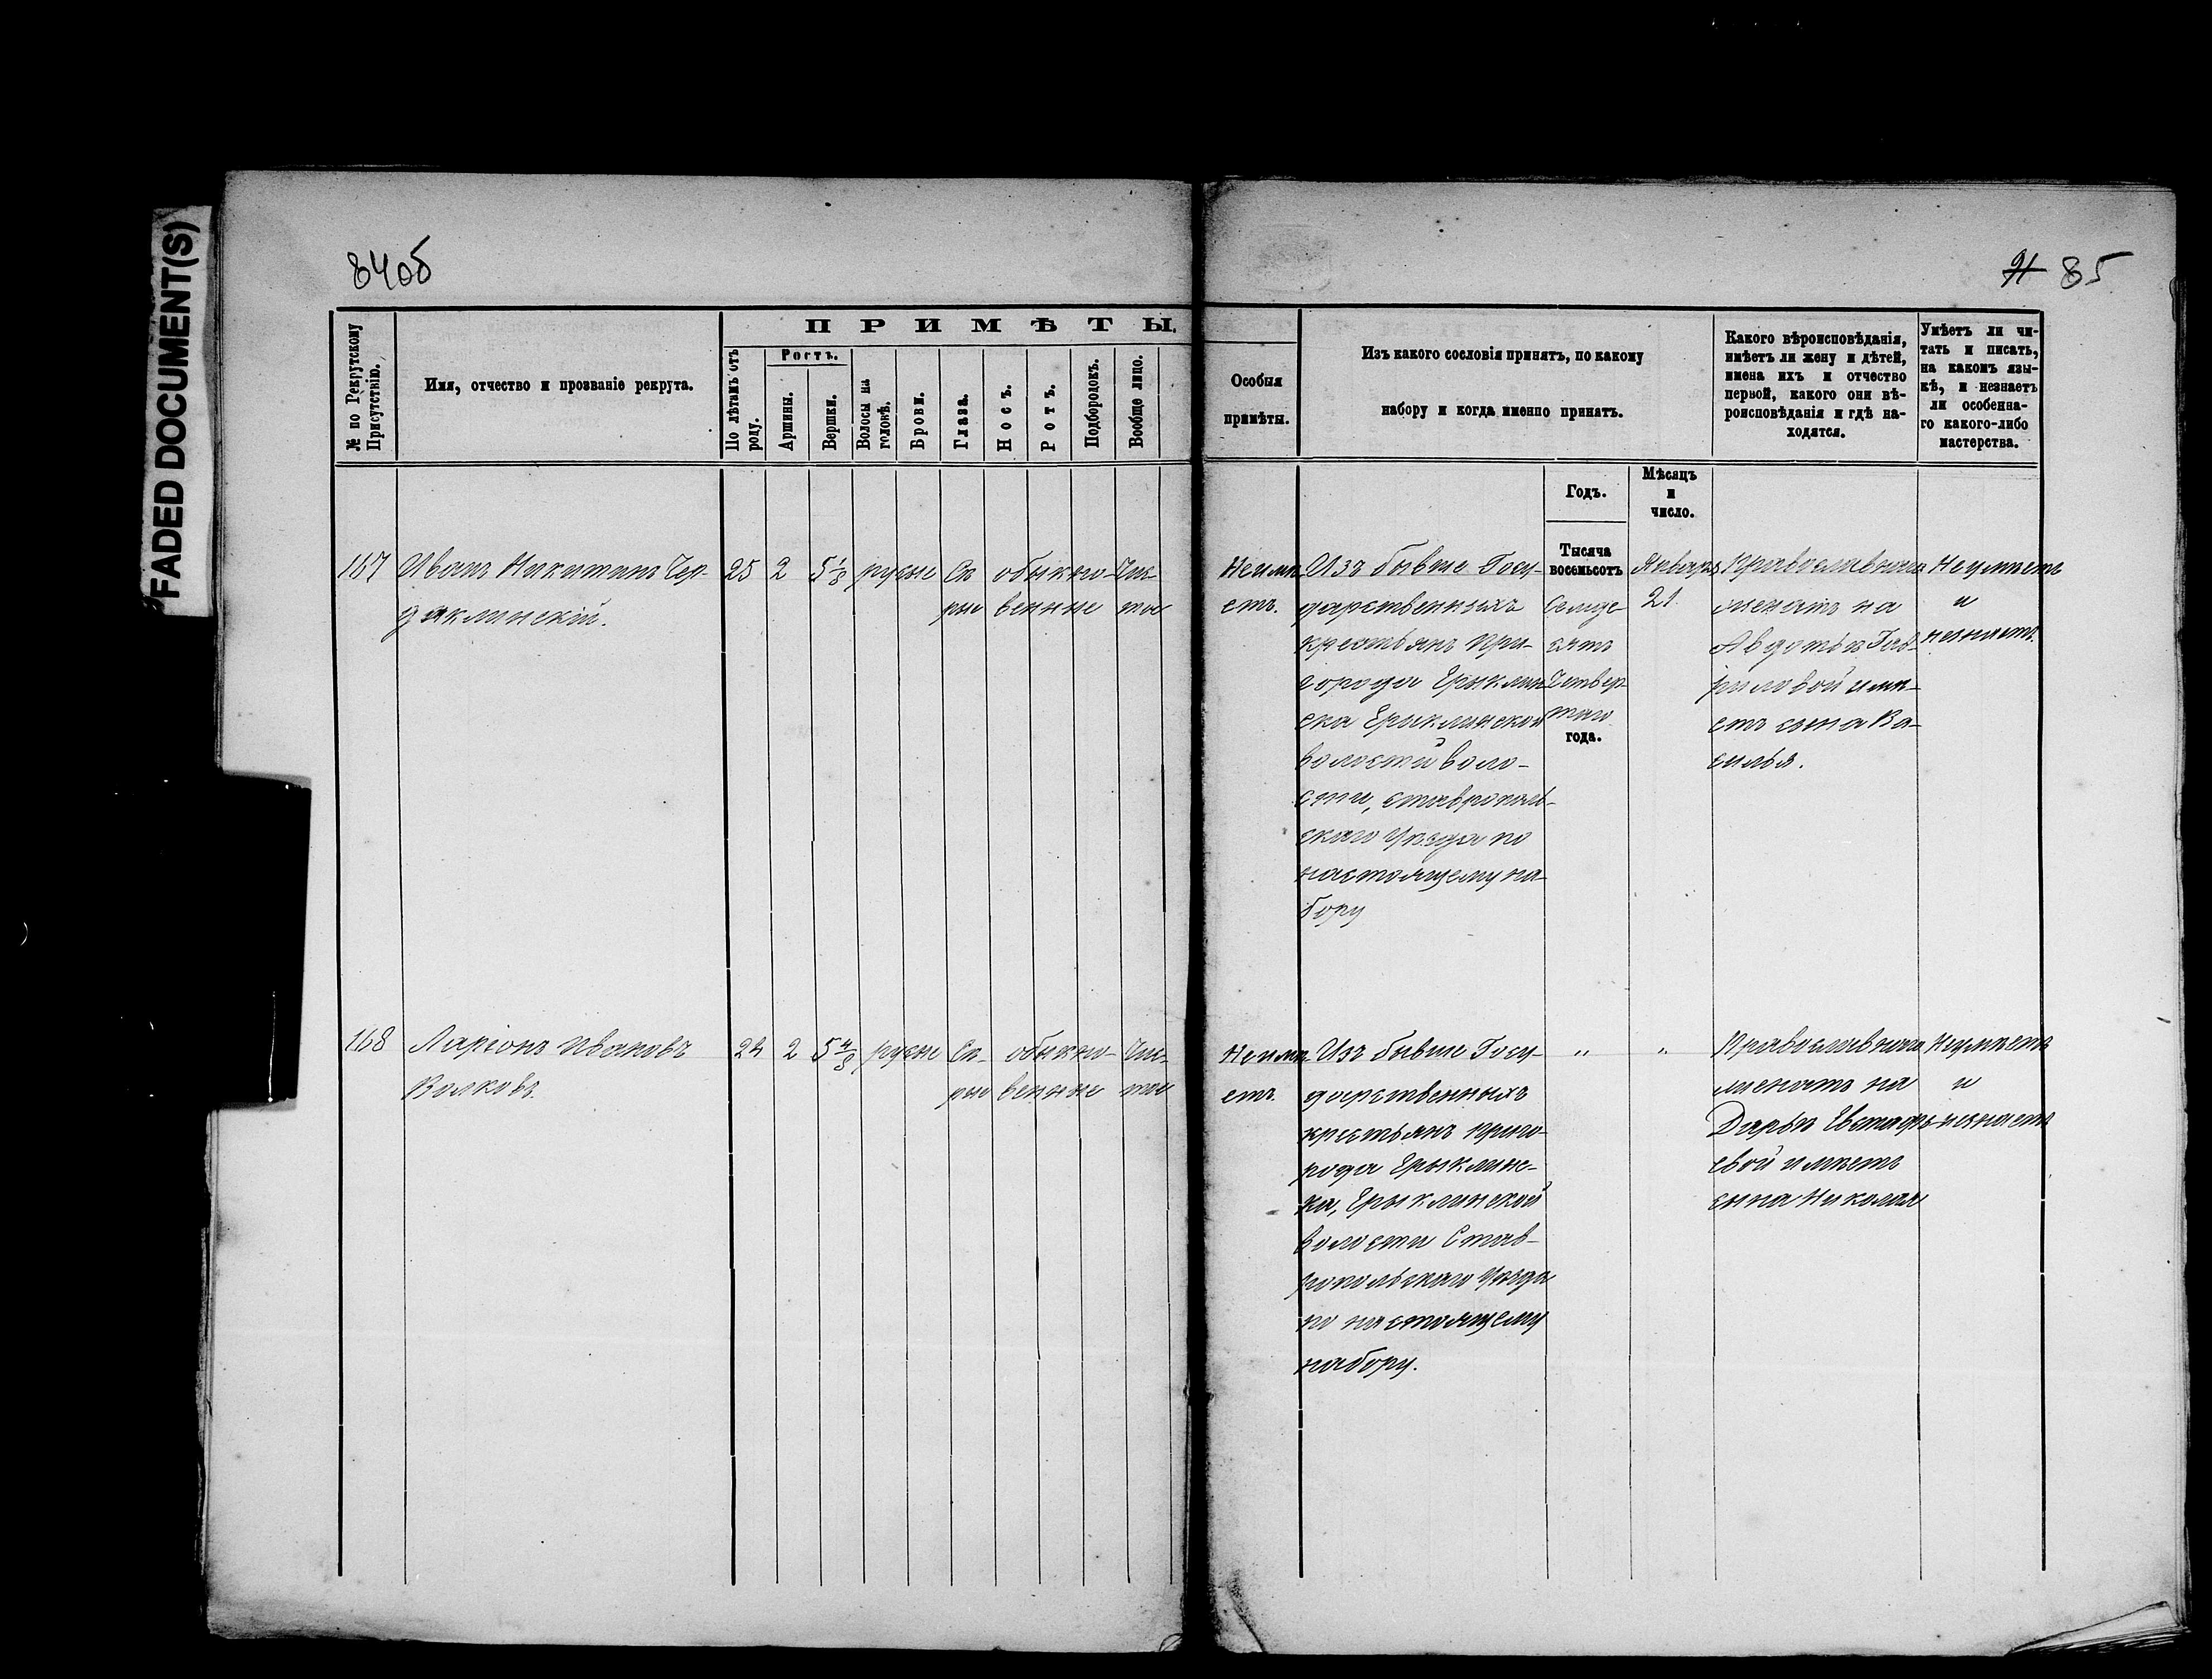 FADED DOCUMENT(S)
84об
91 85
№ по Рекрутскому Присутствію.
Имя, отчество и прозваніе рекрута.
ПРИМѢТЫ.
По лѣтамъ отъ роду.
Ростъ.
Аршины.
Вершки.
Волосы на головѣ.
Брови.
Глаза.
Носъ.
Ротъ.
Подбородокъ.
Вообще лицо.
Особыя
примѣты.
Изъ какого сословія принятъ, по какому
набору и когда именно принятъ.
Какого вѣроисповѣданія,
имѣетъ ли жену и дѣтей,
имена ихъ и отчество
первой, какого они вѣ-
роисповѣданія и гдѣ на-
ходятся.
Умѣетъ ли чи-
тать и писать,
на какомъ язы-
кѣ, и незнаетъ
ли особенна-
го какого-либо
мастерства.
Годъ.
Мѣсяцъ
и
число.
167
Иванъ Никитинъ Чер-
даклинскій.
25
2
5 1/8
русые
Сѣ
рые
обыкно-
венные
Чис-
тое
Неимѣ-
етъ.
Изъ бывше Госу-
дарственныхъ
крестьянъ При-
города Ерыклин
ска Ерыклинской
волости воло-
сти, ставрополь-
скаго Уѣзда по
настоящему на-
бору
Тысяча
восемьсотъ
Семде
сятъ
Четвер
таго
года.
Января
21.
Православнаго
женатъ на
Авдотьѣ Гав-
риловой имѣ-
етъ сына Ва-
силья.
Неумѣетъ
и
незнаетъ.
168
Ларіонъ Ивановъ
Волковъ.
24
2
5 4/8
русые
Сѣ-
рые
обыкно-
венные
Чис-
тое
Неимѣ-
етъ.
Изъ бывше Госу-
дарственныхъ
крестьянъ приго-
рода Ерыклинс-
ка, Ерыклинской
волости Став-
ропольскаго Уѣзда
по настоящему
набору.
"
"
Православнаго
женатъ на
Дарьѣ Евстафь-
евой имѣетъ
сына Николая
Неумѣетъ
и
незнаетъ